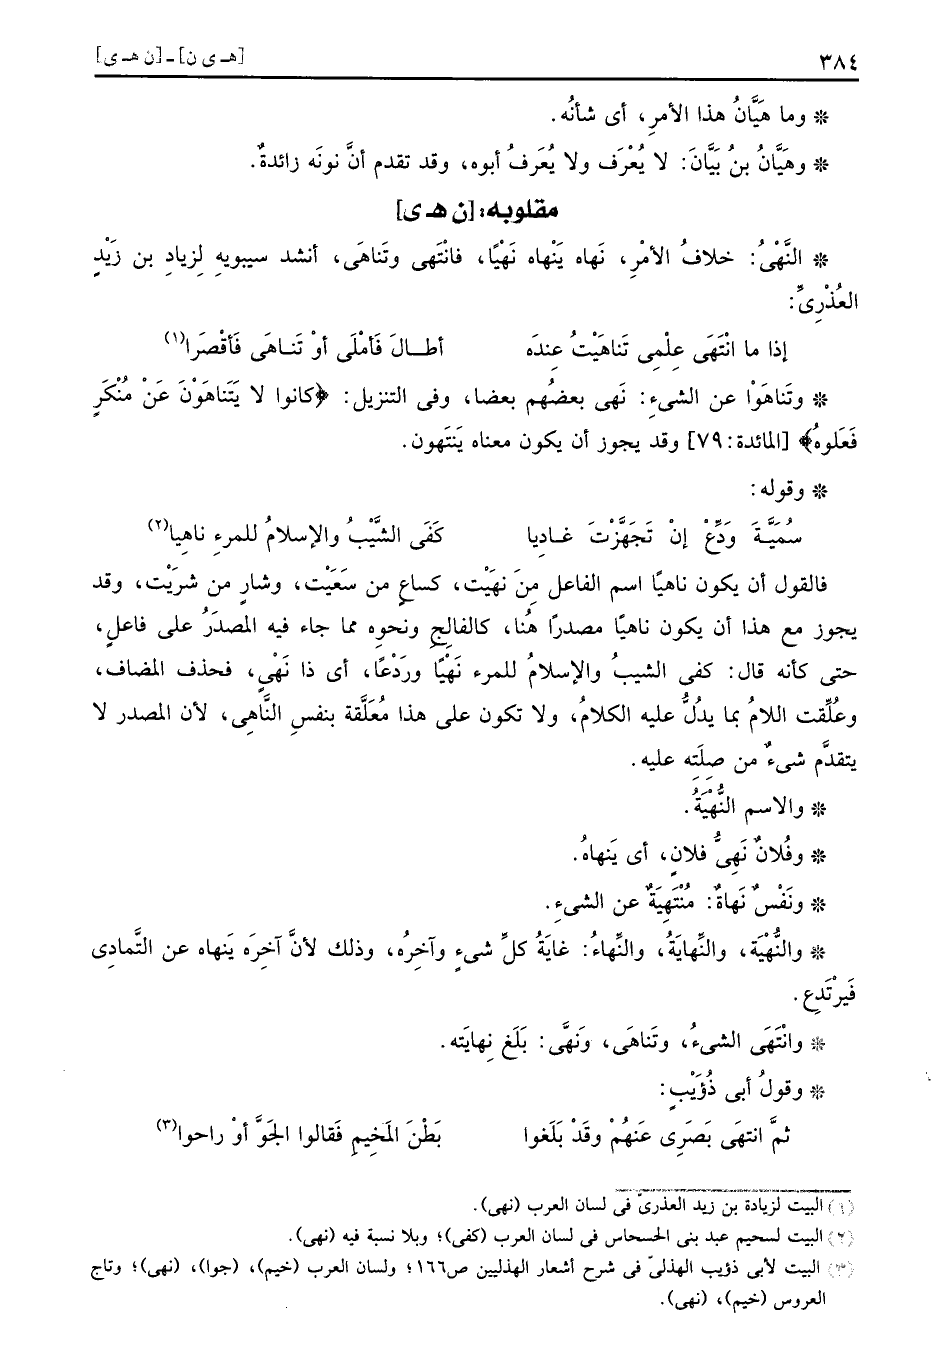 ٣٨٤ [هـ ى ن] ـ [ن هـ ى]
* وما هَيَّانُ هذا الأمرِ، أى شأنُه.
* وهَيَّانُ بنُ بَيَّانَ: لا يُعْرَف ولا يُعرَفُ أبوه، وقد تقدم أنَّ نونَه زائدةٌ.
مقلوبه: [ن هـ ى]
* النَّهْىُ: خلافُ الأمْرِ، نَهاه يَنْهاه نَهْيًا، فانْتَهى وتَناهَى، أنشد سيبويهِ لزيادِ بن زَيْدٍ
العُذْرِىِّ:
إذا ما انْتَهَى عِلْمِى تَناهَيْتُ عِندَه أطــالَ فَأمْلَى أوْ تَنـاهَى فَأقْصَرا(١)
* وتَناهَوْا عن الشىءِ: نَهى بعضُهم بعضا، وفى التنزيل: ﴿كانوا لا يَتَناهَوْنَ عَنْ مُنْكَرٍ
فَعَلوهُ﴾ [المائدة: ٧٩] وقد يجوز أن يكون معناه يَنتَهون.
* وقوله:
سُمَيَّـةَ وَدِّعْ إنْ تَجَهَّزْتَ غـاديا كَفَى الشَّيْبُ والإسلامُ للمرءِ ناهِيا(٢)
فالقول أن يكون ناهيًا اسم الفاعل مِنَ نهَيْت، كساعٍ من سَعَيْت، وشارٍ من شرَيْت، وقد
يجوز مع هذا أن يكون ناهيًا مصدرًا هُنا، كالفالِجِ ونحوِه مما جاء فيه المصدَرُ على فاعلٍ،
حتى كأنه قال: كفى الشيبُ والإسلامُ للمرء نَهْيًا ورَدْعًا، أى ذا نَهْىٍ، فحذف المضاف،
وعُلِّقت اللامُ بما يدلُّ عليه الكلامُ، ولا تكون على هذا مُعَلَّقة بنفسِ النَّاهِى، لأن المصدر لا
يتقدَّم شىءٌ من صِلَتِه عليه.
* والاسم النُّهْيَةُ.
* وفُلانٌ نَهِىُّ فلانٍ، أى يَنهاهُ.
* ونَفْسٌ نَهاةٌ: مُنْتَهِيَةٌ عن الشىءِ.
* والنُّهْيَة، والنِّهايَةُ، والنِّهاءُ: غايَةُ كلِّ شىءٍ وآخِرُه، وذلك لأنَّ آخِرَه يَنهاه عن التَّمادِى
فَيرْتَدِع.
* وانْتَهَى الشىءُ، وتَناهَى، ونَهَّى: بَلَغ نِهايَته.
* وقولُ أبى ذُؤَيْبٍ:
ثمَّ انتهَى بَصَرِى عَنهُمْ وقَدْ بَلَغوا بَطْنَ المَخِيمِ فَقالوا الجَوَّ أوْ راحوا(٣)
(١) البيت لزيادة بن زيد العذرىّ فى لسان العرب (نهى).
(٢) البيت لسحيم عبد بنى الحسحاس فى لسان العرب (كفى)؛ وبلا نسبة فيه (نهى).
(٣) البيت لأبى ذؤيب الهذلىّ فى شرح أشعار الهذليين ص١٦٦؛ ولسان العرب (خيم)، (جوا)، (نهى)؛ وتاج
العروس (خيم)، (نهى).